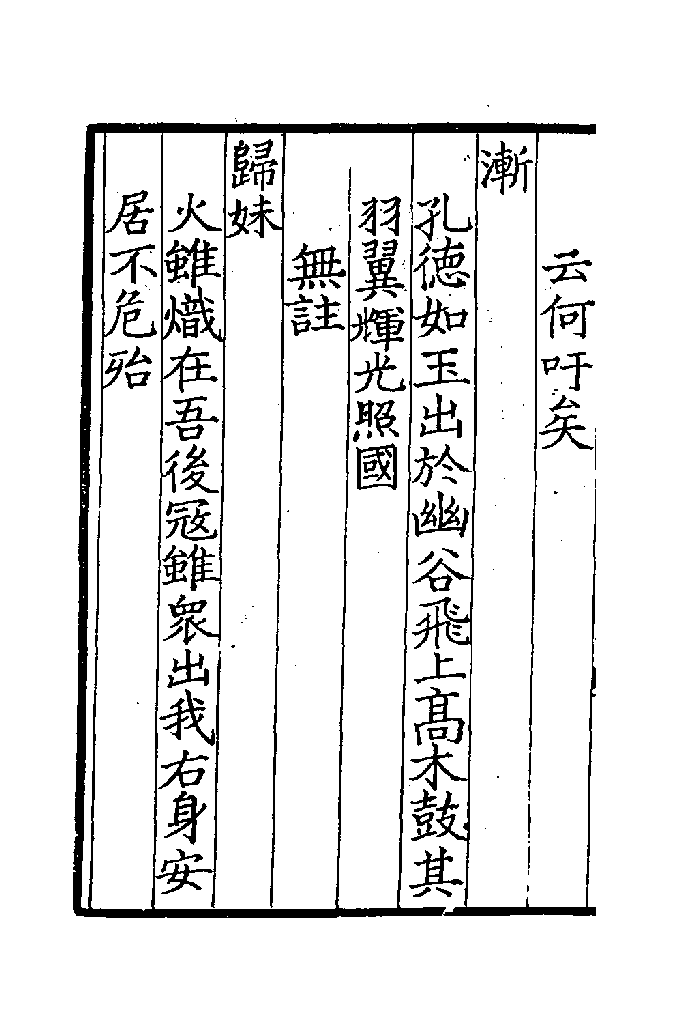 云何吁矣
漸
孔德如玉出於幽谷飛上髙木鼓其
羽翼輝光照國
無註
歸妹
火雖熾在吾後冦雖衆出我右身安
居不危殆